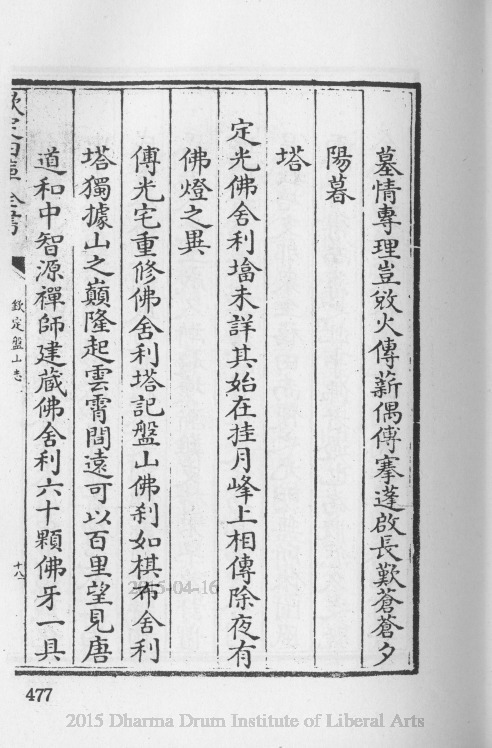 墓情專理豈效火傳薪偶傳搴蓬啟長歎蒼蒼夕
陽暮
塔
定光佛舍利塔未詳其始在挂月峰上相傳除夜有
佛燈之異
傅光宅重修佛舍利塔記盤山佛刹如棋布舍利
塔獨據山之巔隆起雲霄間遠可以百里望見唐
道和中智源禪師建藏佛舍利六十顆佛牙一具
欽定四庫全書
欽定盤山志
十八
477
2015-04-16
2015 Dharma Drum Institute of Liberal Arts